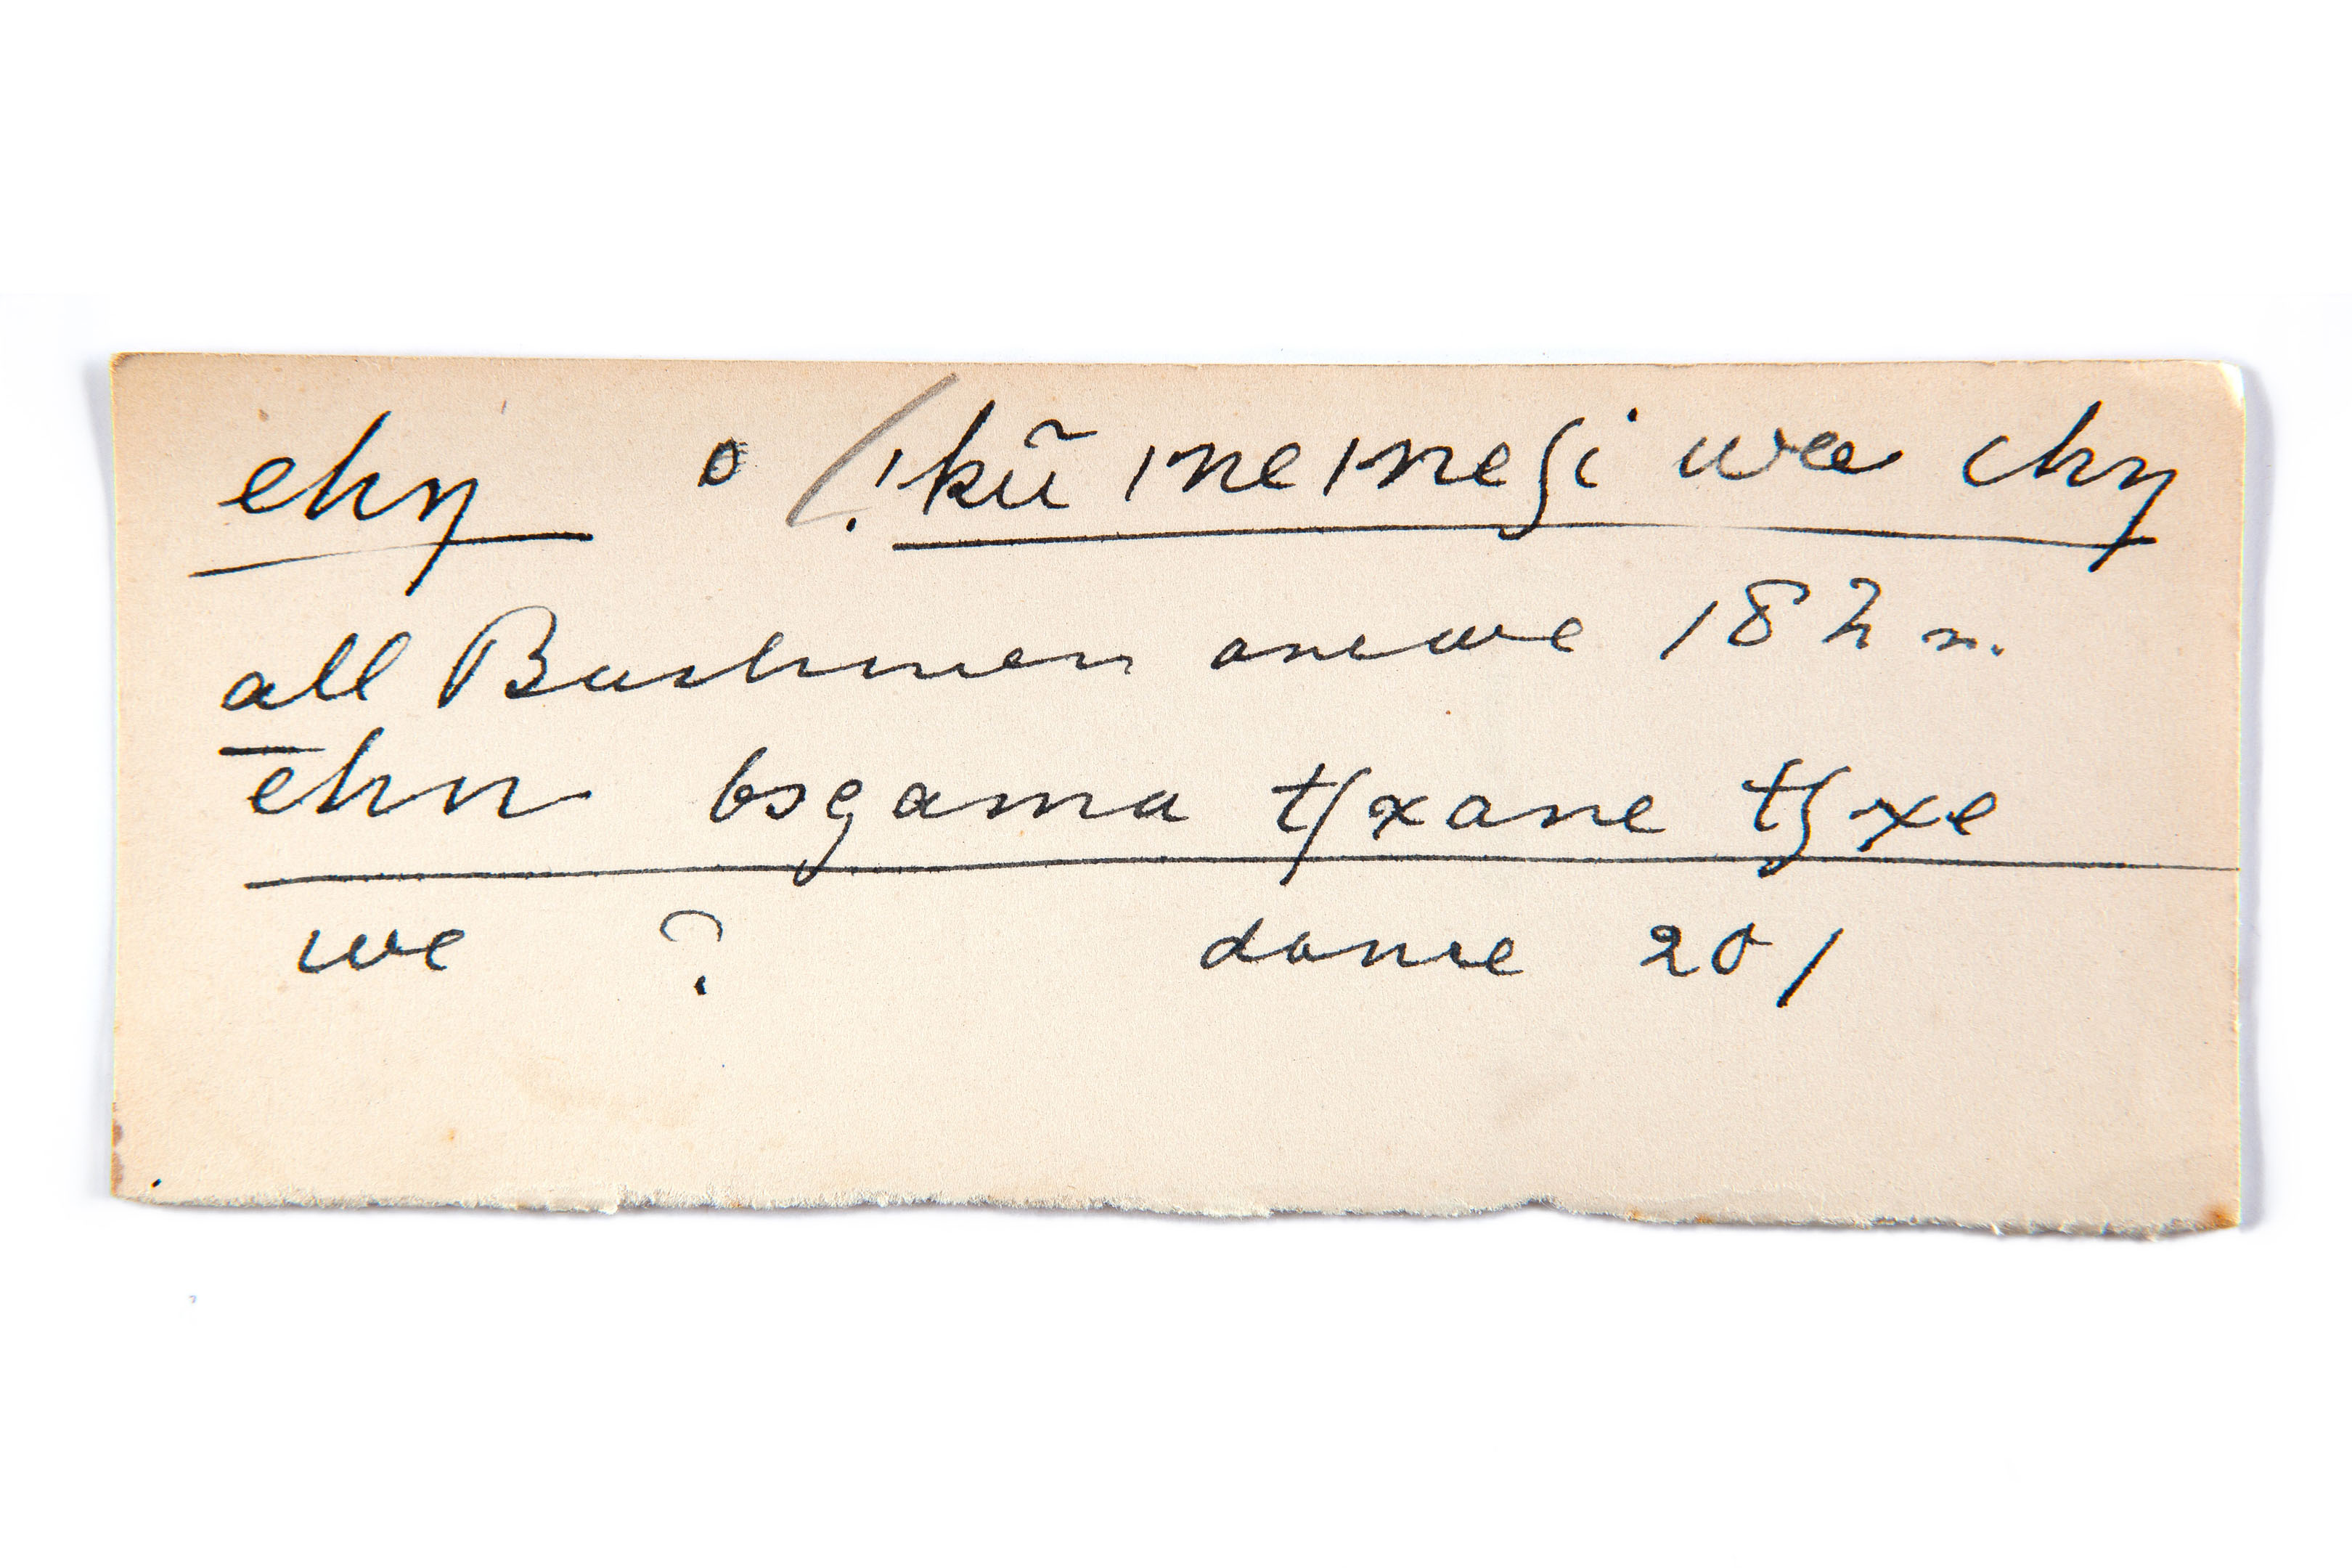 ehŋ o (!'kũ /ne/neʃi we ehŋ
all Bushmen are we 182 n.
ehn bsgama tʃxane tʃxe
we ? danse 201